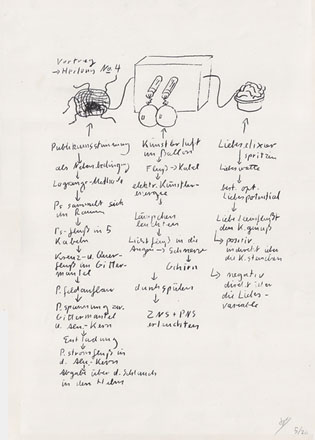 Vortrag
→ Heilens No 4
Publikumsstimmung
als Nebenbedingung
Lagrange-Methode
Ps sammelt sich
im Raum
Ps-fluß in 5
Kabeln
Kreuz- u. Quer-
fluß im Gitter-
mantel
P.feldaufbau
P.spannung zw.
Gittermantel
u. -Kern
Entladung
P.stromfluß in
d. -Kern
Abgabe über d. Schlauch
in den
Künstlerluft
im Ballon
Fluß → Kabel
elektr. Künstler-
energie
Lämpchen
leuchten
Lichtfluß in die
Augen → Sehnerv
Gehirn
durchspülen
ZNS + PNS
erleuchten
Liebeselixier
spritzen
Liebeswatte
best. opt.
Liebespotential
Liebe beeinflußt
den K.genuß
→ positiv
indirekt über
→ negativ
direkt über
die Liebes-
variable